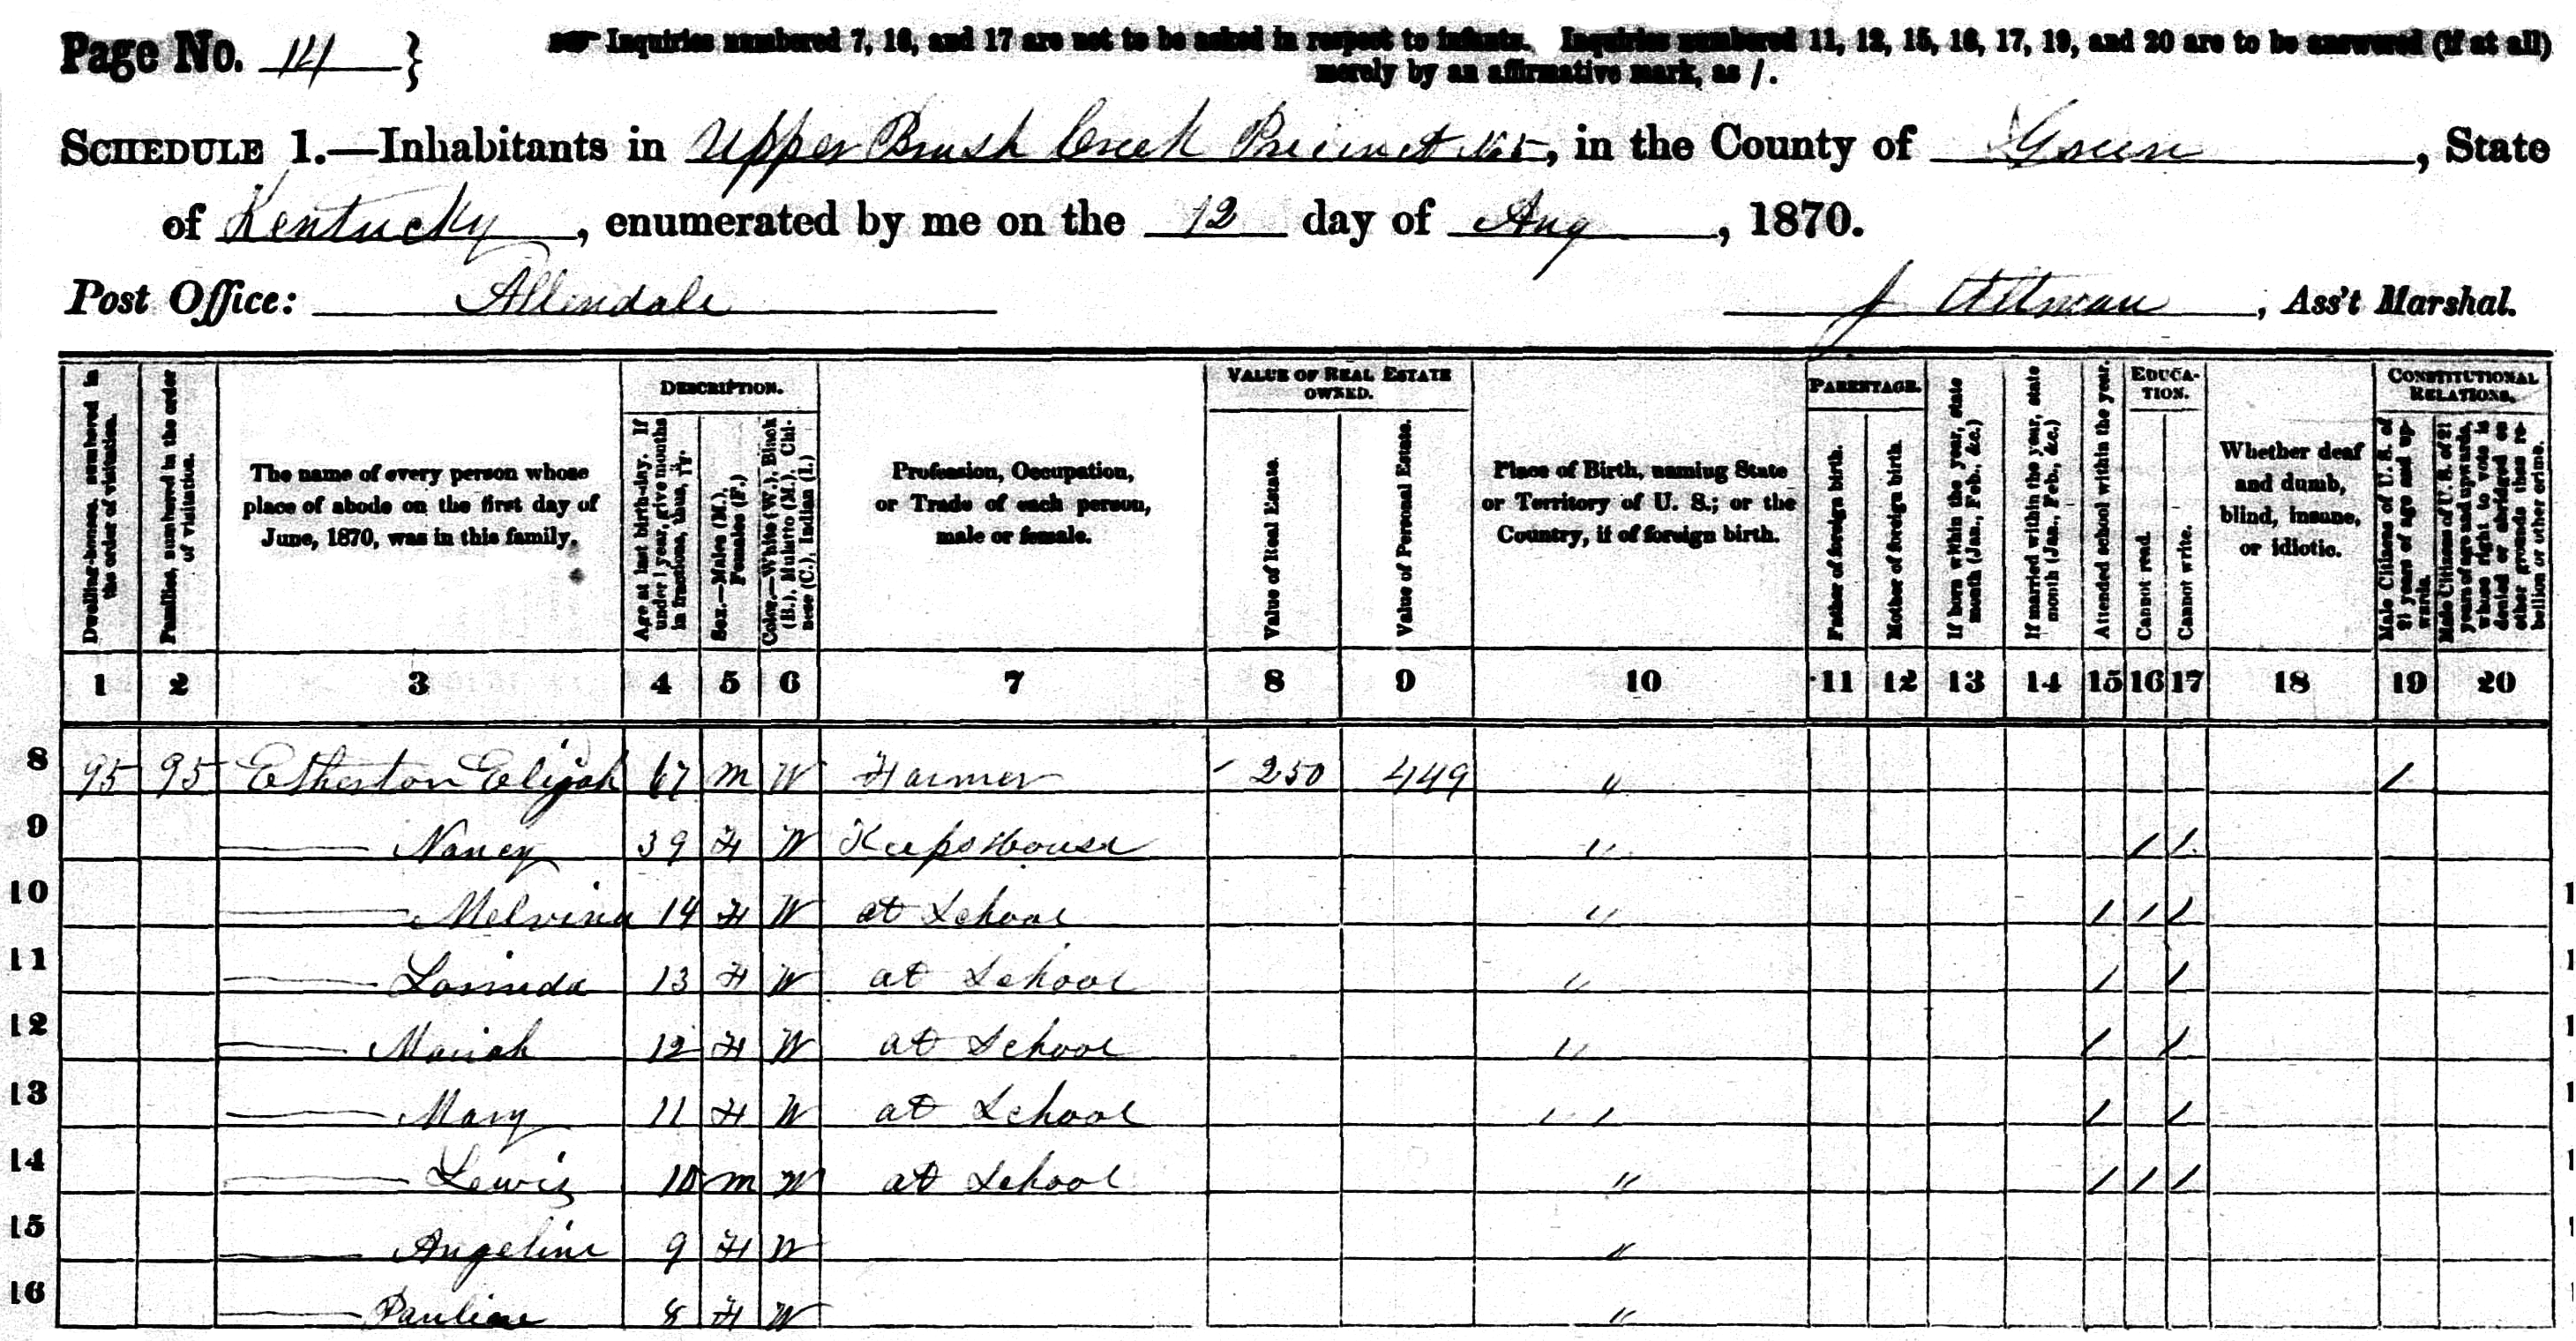 Page No. 14 }
Inquiries numbered 7, 16, and 17 are not to be asked in respect to infants. Inquiries numbered 11, 12, 15, 16, 17, 19, and 20 are to be answered (if at all)
merely by an affirmative mark, as /.
SCHEDULE 1.—Inhabitants in Upper Brush Creek Precinct No 5, in the County of Green, State
of Kentucky, enumerated by me on the 12 day of Aug, 1870.
Post Office: Allendale J Altman, Ass't Marshal.
Dwelling-houses, numbered in the order of visitation.
Families, numbered in the order of visitation.
The name of every person whose place of abode on the first day of June, 1870, was in this family.
DESCRIPTION.
Age at last birth-day. If under 1 year, give months in fractions, thus, 3/12.
Sex.—Males (M.), Females (F.)
Color.—White (W.), Black (B.), Mulatto (M.), Chinese (C.), Indian (I.)
Profession, Occupation, or Trade of each person, male or female.
VALUE OF REAL ESTATE OWNED.
Value of Real Estate.
Value of Personal Estate.
Place of Birth, naming State or Territory of U. S.; or the Country, if of foreign birth.
PARENTAGE.
Father of foreign birth.
Mother of foreign birth.
If born within the year, state month (Jan., Feb., &c.)
If married within the year, state month (Jan., Feb., &c.)
Attended school within the year.
EDUCATION.
Cannot read.
Cannot write.
Whether deaf and dumb, blind, insane, or idiotic.
CONSTITUTIONAL RELATIONS.
Male Citizens of U. S. of 21 years of age and upwards.
Male Citizens of U. S. of 21 years of age and upwards, whose right to vote is denied or abridged on other grounds than rebellion or other crime.
1 2 3 4 5 6 7 8 9 10 11 12 13 14 15 16 17 18 19 20
8 95 95 Etherton Elijah 67 M W Farmer 250 449 " /
9 —— Nancy 39 F W Keeps House " / /
10 —— Melvina 14 F W at School " / / /
11 —— Lorinda 13 F W at School " / /
12 —— Mariah 12 F W at School " / /
13 —— Mary 11 F W at School " / /
14 —— Lewis 10 M W at School " / / /
15 —— Angeline 9 F W "
16 —— Pauline 8 F W "